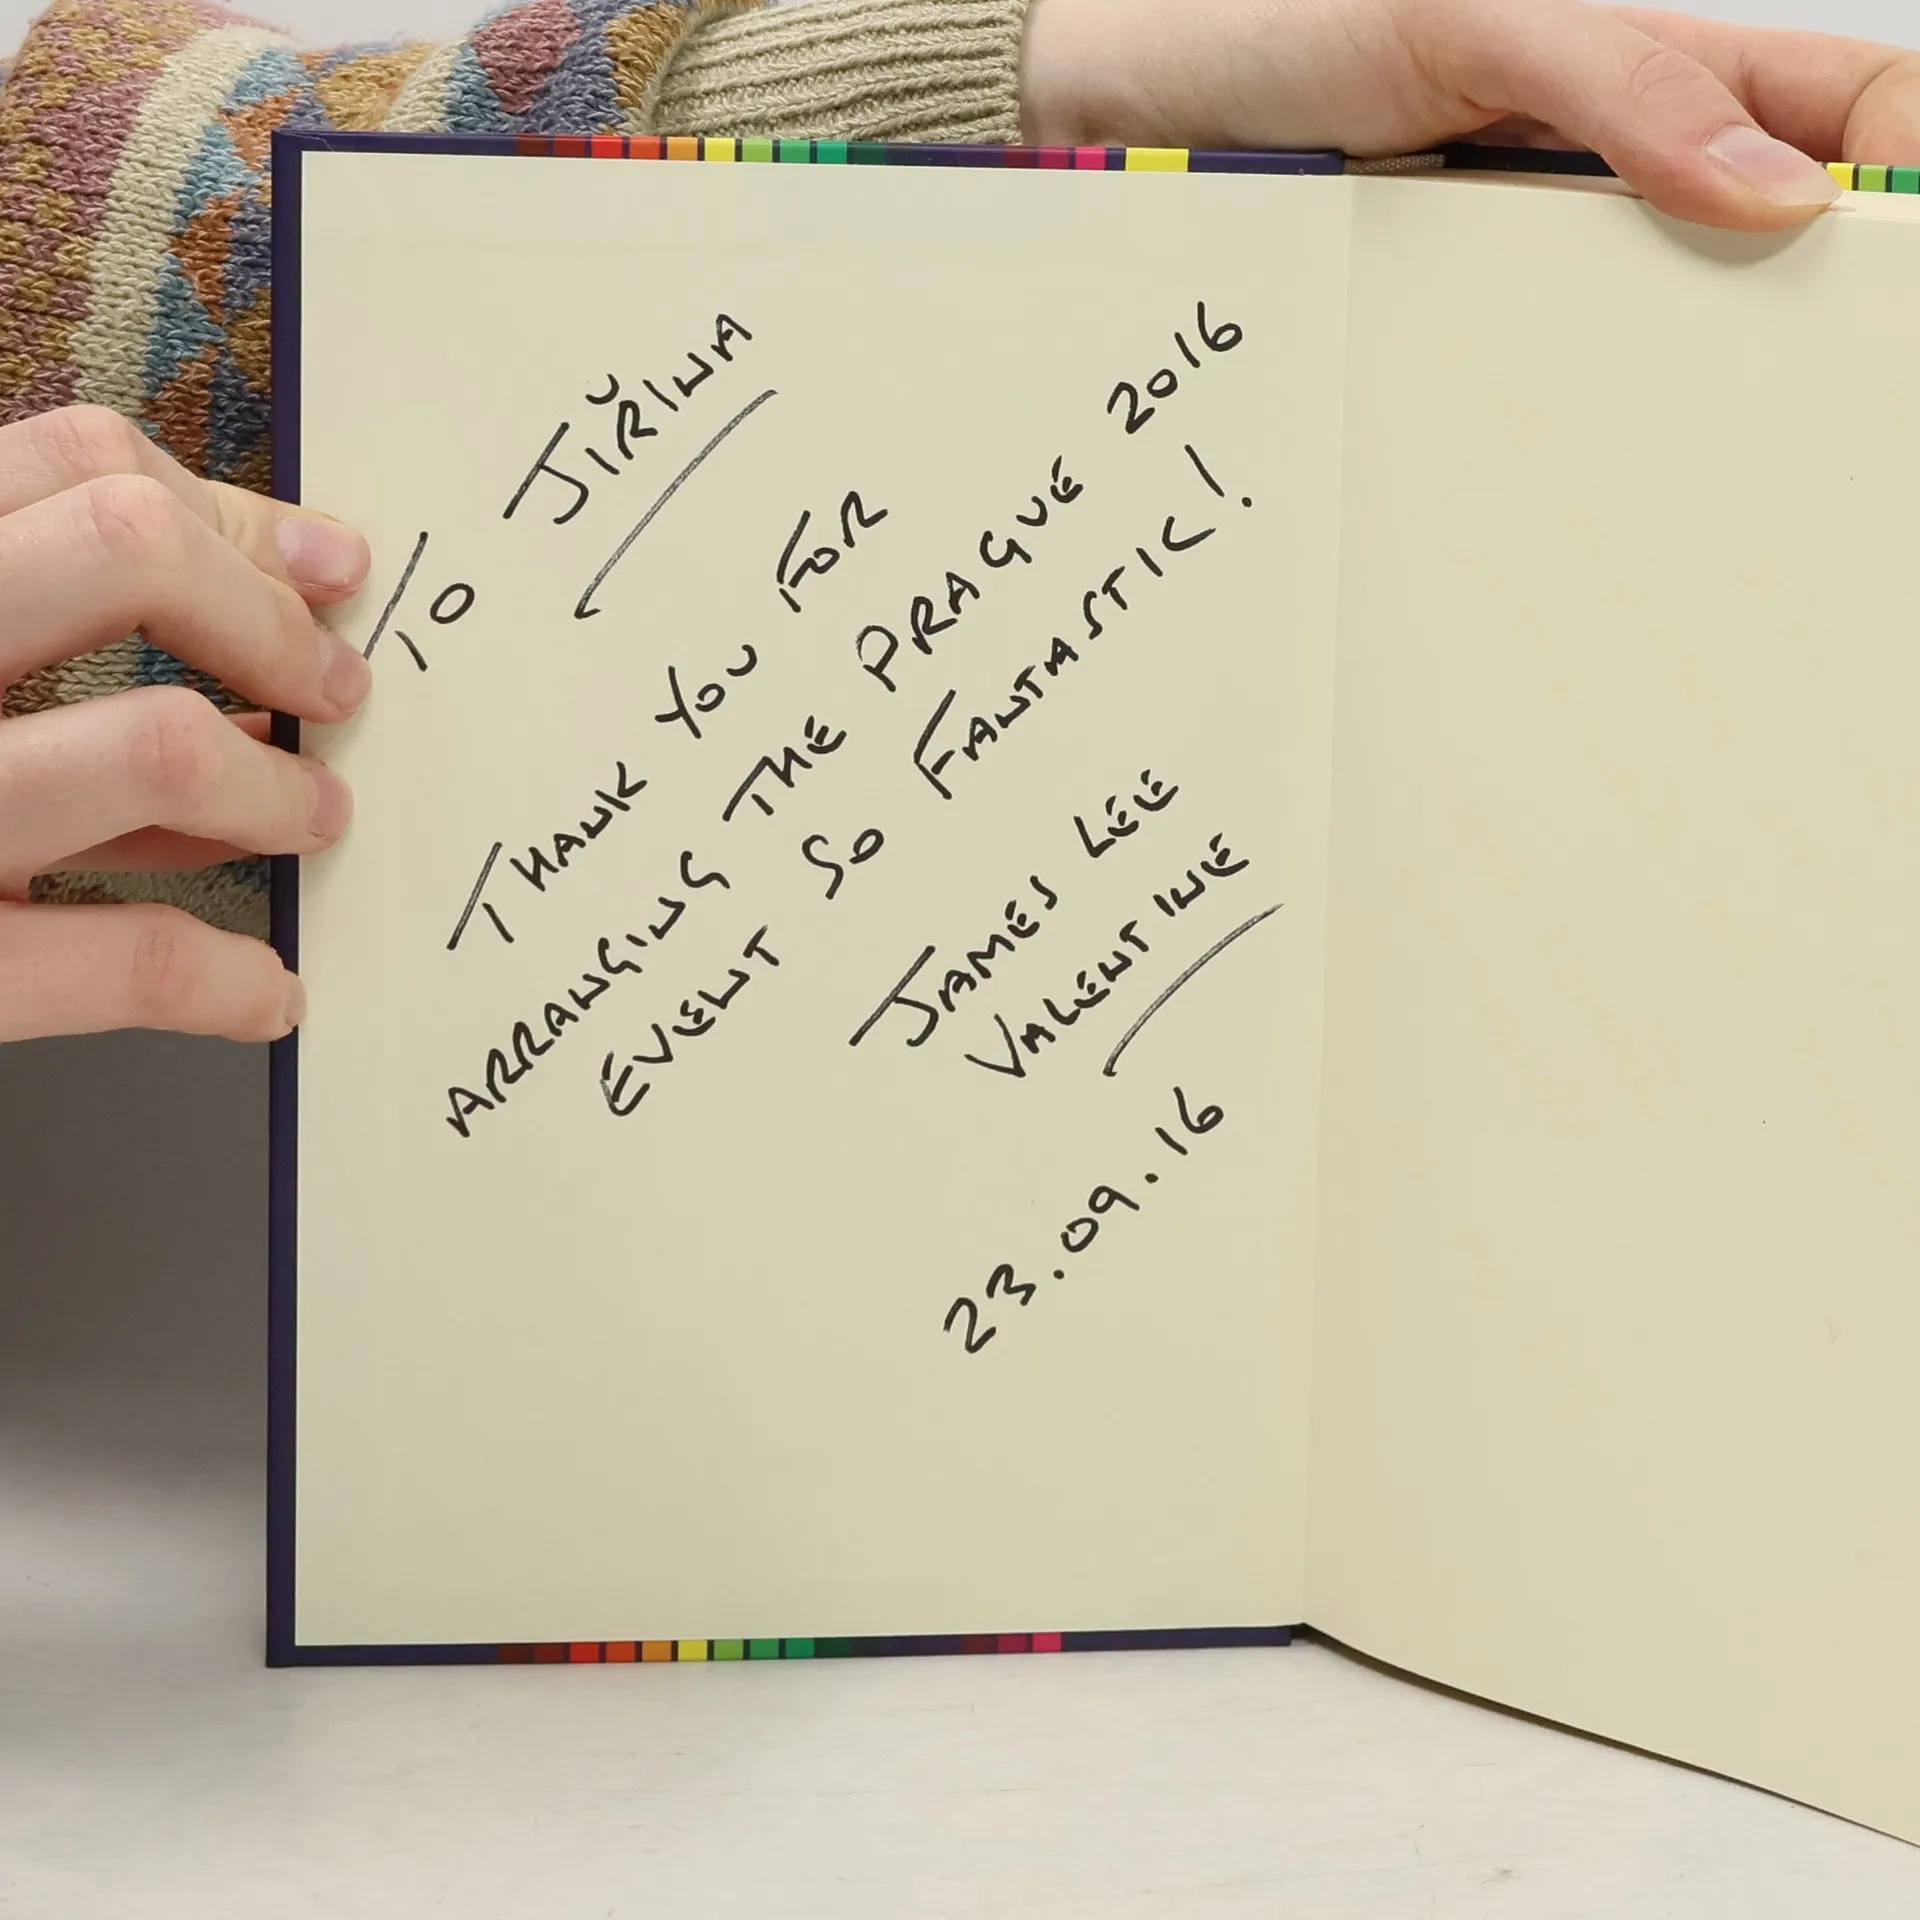 TO JIŘINA
THANK YOU FOR
ARRANGING THE PRAGUE 2016
EVENT SO FANTASTIC!
JAMES LEE
VALENTINE
23.09.16